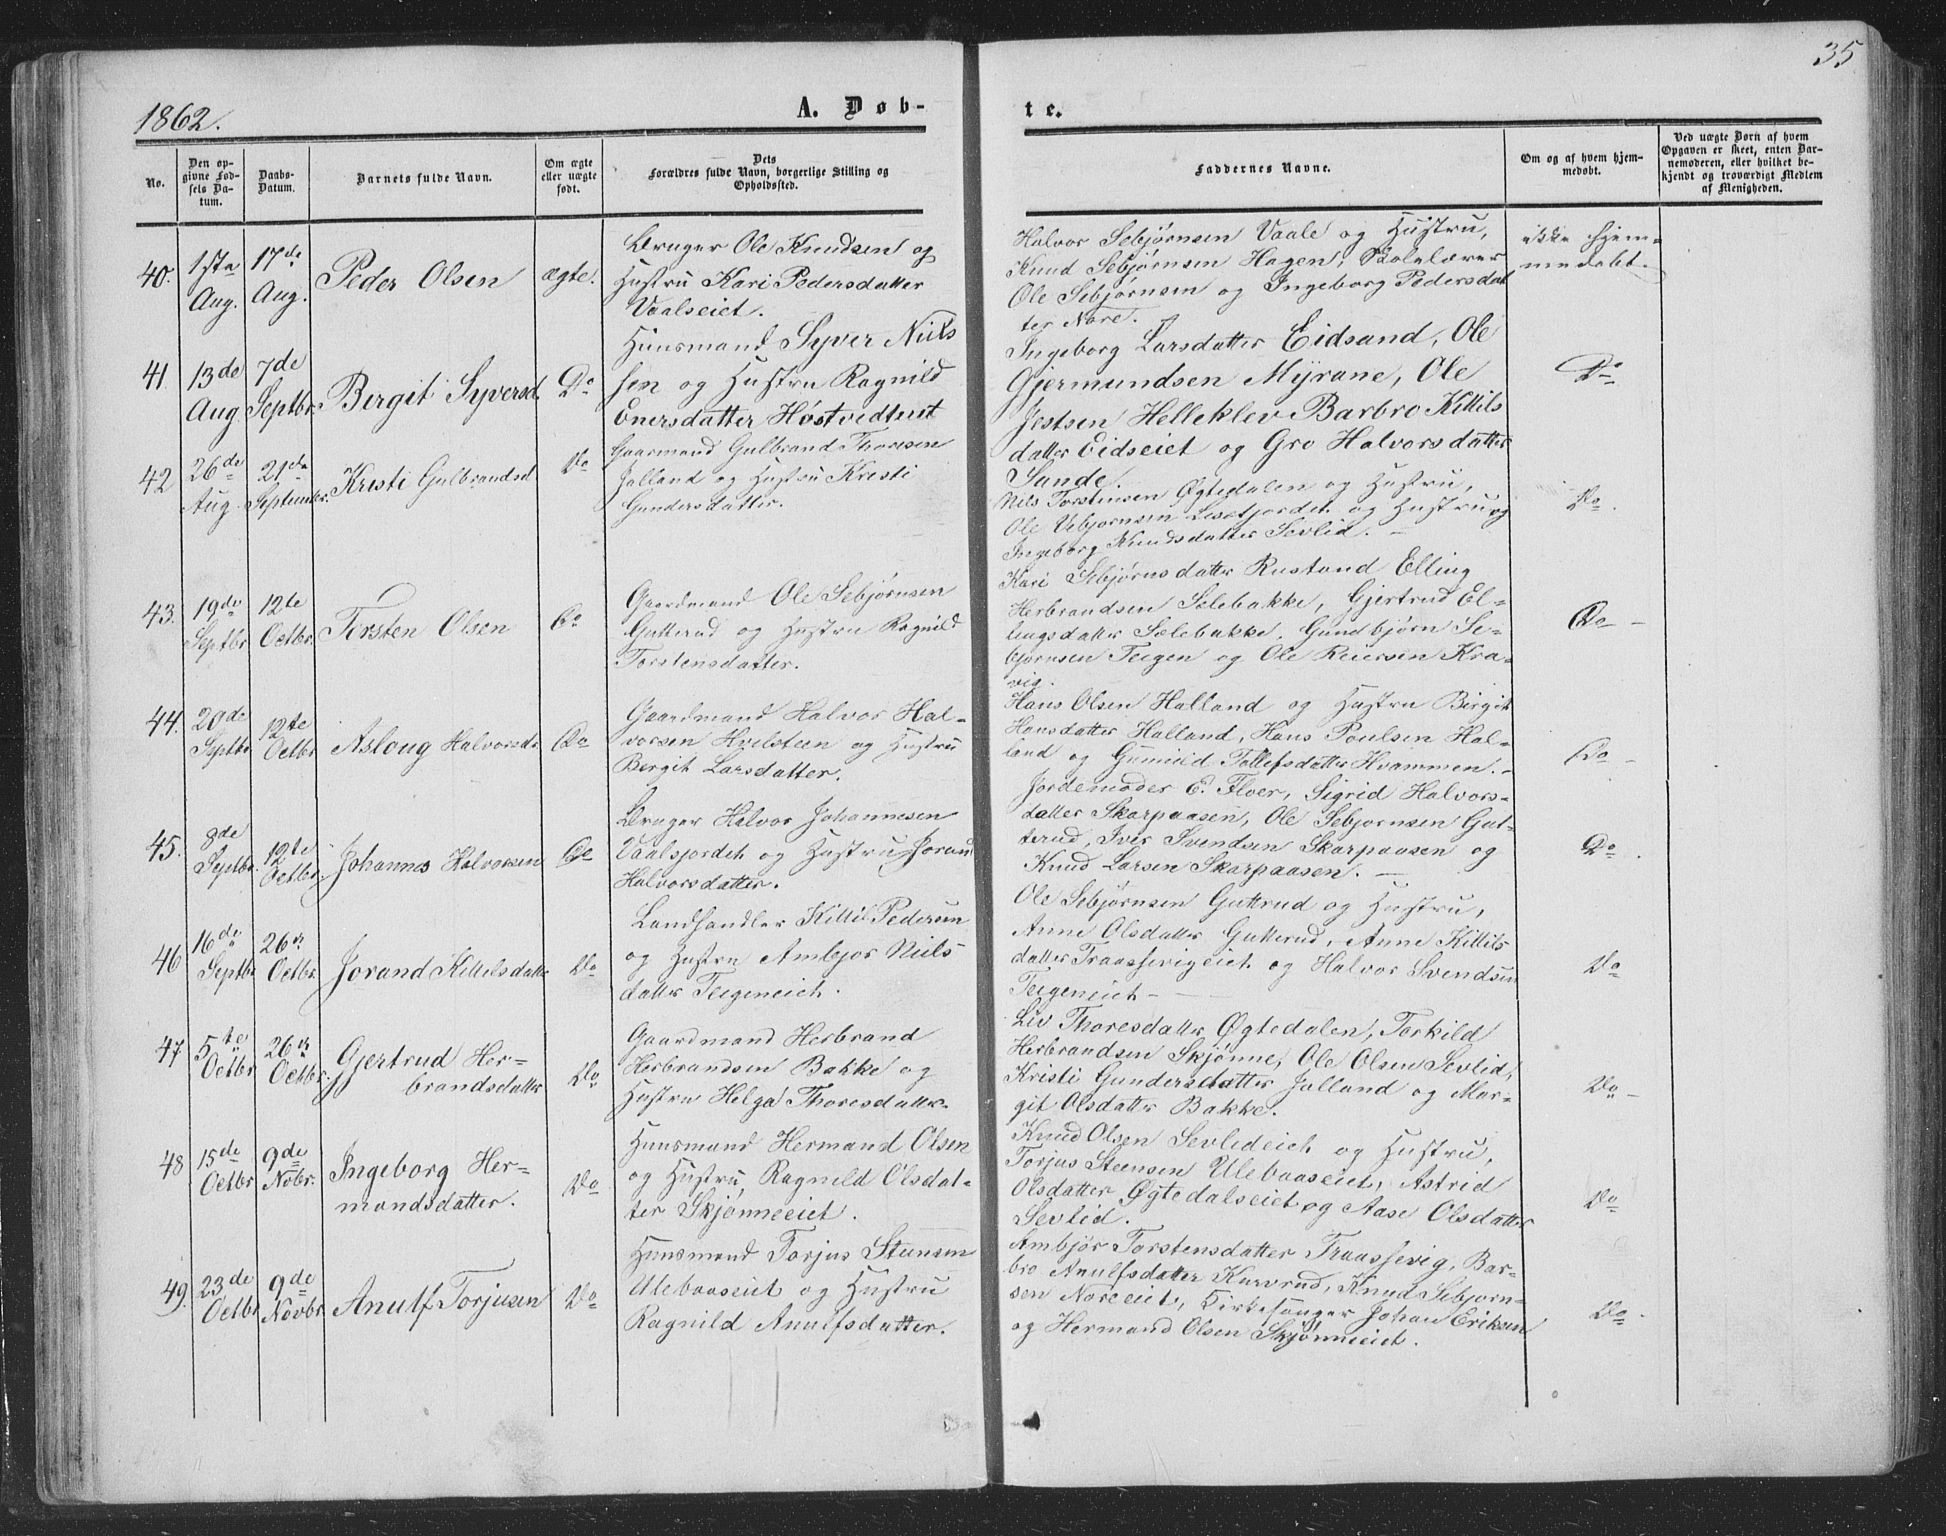 35
1862.
A. Døb-
te.
No.
Den opgivne Fødsels Datum.
Daabs-Datum.
Barnets fulde Navn.
Om ægte eller uægte født.
Dets Forældres fulde Navn, borgerlige Stilling og Opholdssted.
Faddernes Navne.
Om og af hvem hjemmedøbt.
Ved uægte Børn af hvem Opgaven er skeet, enten Barnemoderen, eller hvilket bekjendt og troværdigt Medlem af Menigheden.
40. 1ste Aug. 17de Aug. Peder Olsen ægte.
Bruger Ole Knudsen og
Hustru Kari Pedersdatter
Vaalseiet.
Halvor Sebjørnsen Vaale og Hustru,
Knud Sebjørnsen Hagen, Skolelærer
Ole Sebjørnsen og Ingeborg Pedersdat
ter Nore.
ikke hjem-
medøbt.
41 13de Aug. 7de Septbr. Birgit Syversd. Do
Huusmand Syver Niels
sen og Hustru Ragnild
Enersdatter Høstvedteiet
Ingeborg Larsdatter Eidsand, Ole
Gjermundsen Myrane, Ole
Jestsen Helleklev Barbro Kittils
datter Eidseiet og Gro Halvorsdatter
Sande.
Do
42 26de Aug. 21de Septembr. Kristi Gulbrandsd. Do
Gaarmand Gulbrand Thoresen
Jalland og Hustru Kristi
Gundersdatter.
Nils Torstensen Øgtedalen og Hustru,
Ole Vebjørnsen Lesetjordet og Hustru og
Ingeborg Knudsdatter Sevlid. -
Do.
43. 19de Septbr. 12te Octbr. Torsten Olsen Do
Gaardmand Ole Sebjørnsen
Gutterud og Hustru Ragnild
Torstensdatter.
Kari Sebjørnsdatter Rustand Elling
Herbrandsen Sølebakke, Gjertrud El-
lingsdatter Sølebakke, Gundbjørn Se-
bjørnsen Teigen og Ole Reiersen Kra-
vig.
Do -
44. 20de Septbr. 12te Octbr. Asloug Halvorsdr. Do
Gaardmand Halvor Hal-
vorsen Hvilsteen og Hustru
Bergit Larsdatter.
Hans Olsen Halland og Hustru Birgit
Hansdatter Halland, Hans Poulsen Hal-
land og Gunild Tollefsdatter Hvammen. -
Do -
45. 8de Septbr. 12te Octbr. Johannes Halvorsen Do
Bruger Halvor Johannesen
Vaalsjordet og Hustru Jorand
Halvorsdatter.
Jordemoder E. Floer, Sigrid Halvors-
datter Skarpaasen, Ole Sebjørnsen Gut-
terud, Iver Svendsen Skarpaasen og
Knud Larsen Skarpaasen. -
Do.
46 16de Septbr 26de Octbr. Jorand Kittilsdatter Do
Landhandler Kittil Pedersen
og Hustru Ambjør Niels
datter Teigeneiet.
Ole Sebjørnsen Guttrud og Hustru,
Anne Olsdatter Gutterud, Anne Kittils
datter Traassevigeiet og Halvor Svendsen
Teigeneiet -
Do
47 5te Octbr 26de Octbr. Gjertrud Her-
brandsdatter Do
Gaardmand Herbrand
Herbrandsen Bakke og
Hustru Helga Thoresdatter.
Liv Thoresdatter Øgtedalen, Torkild
Herbrandsen Skjønne, Ole Olsen Sevlid,
Kristi Gundersdatter Jalland og Mar-
git Olsdatter Bakke.
Do -
48 15de Octbr 9de Nobr. Ingeborg Her-
mandsdatter. Do
Huusmand Hermand Olsen
og Hustru, Ragnild Olsdat-
ter Skjønneeiet.
Knud Olsen Sevlideiet og Hustru,
Torjus Steensen Ulebaaseiet, Astrid
Olsdatter Øgtedalseiet og Aase Olsdatter
Sevlid.
Do
49. 23de Octbr 9de Novbr. Anulf Torjusen Do
Huusmand Torjus Steensen
Ulebaaseiet og Hustru
Ragnild Anulfsdatter.
Ambjør Torstensdatter Traassevig, Bar-
bro Anulfsdatter Kurvrud, Knud Sebjørn-
sen Noreeiet, Kirkesanger Johan Eriksen
og Hermand Olsen Skjønneeiet.
Do.